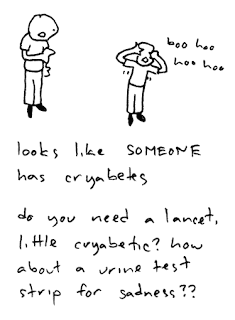 boo hoo
hoo hoo
looks like SOMEONE
has cryabetes
do you need a lancet,
little cryabetic? how
about a urine test
strip for sadness??